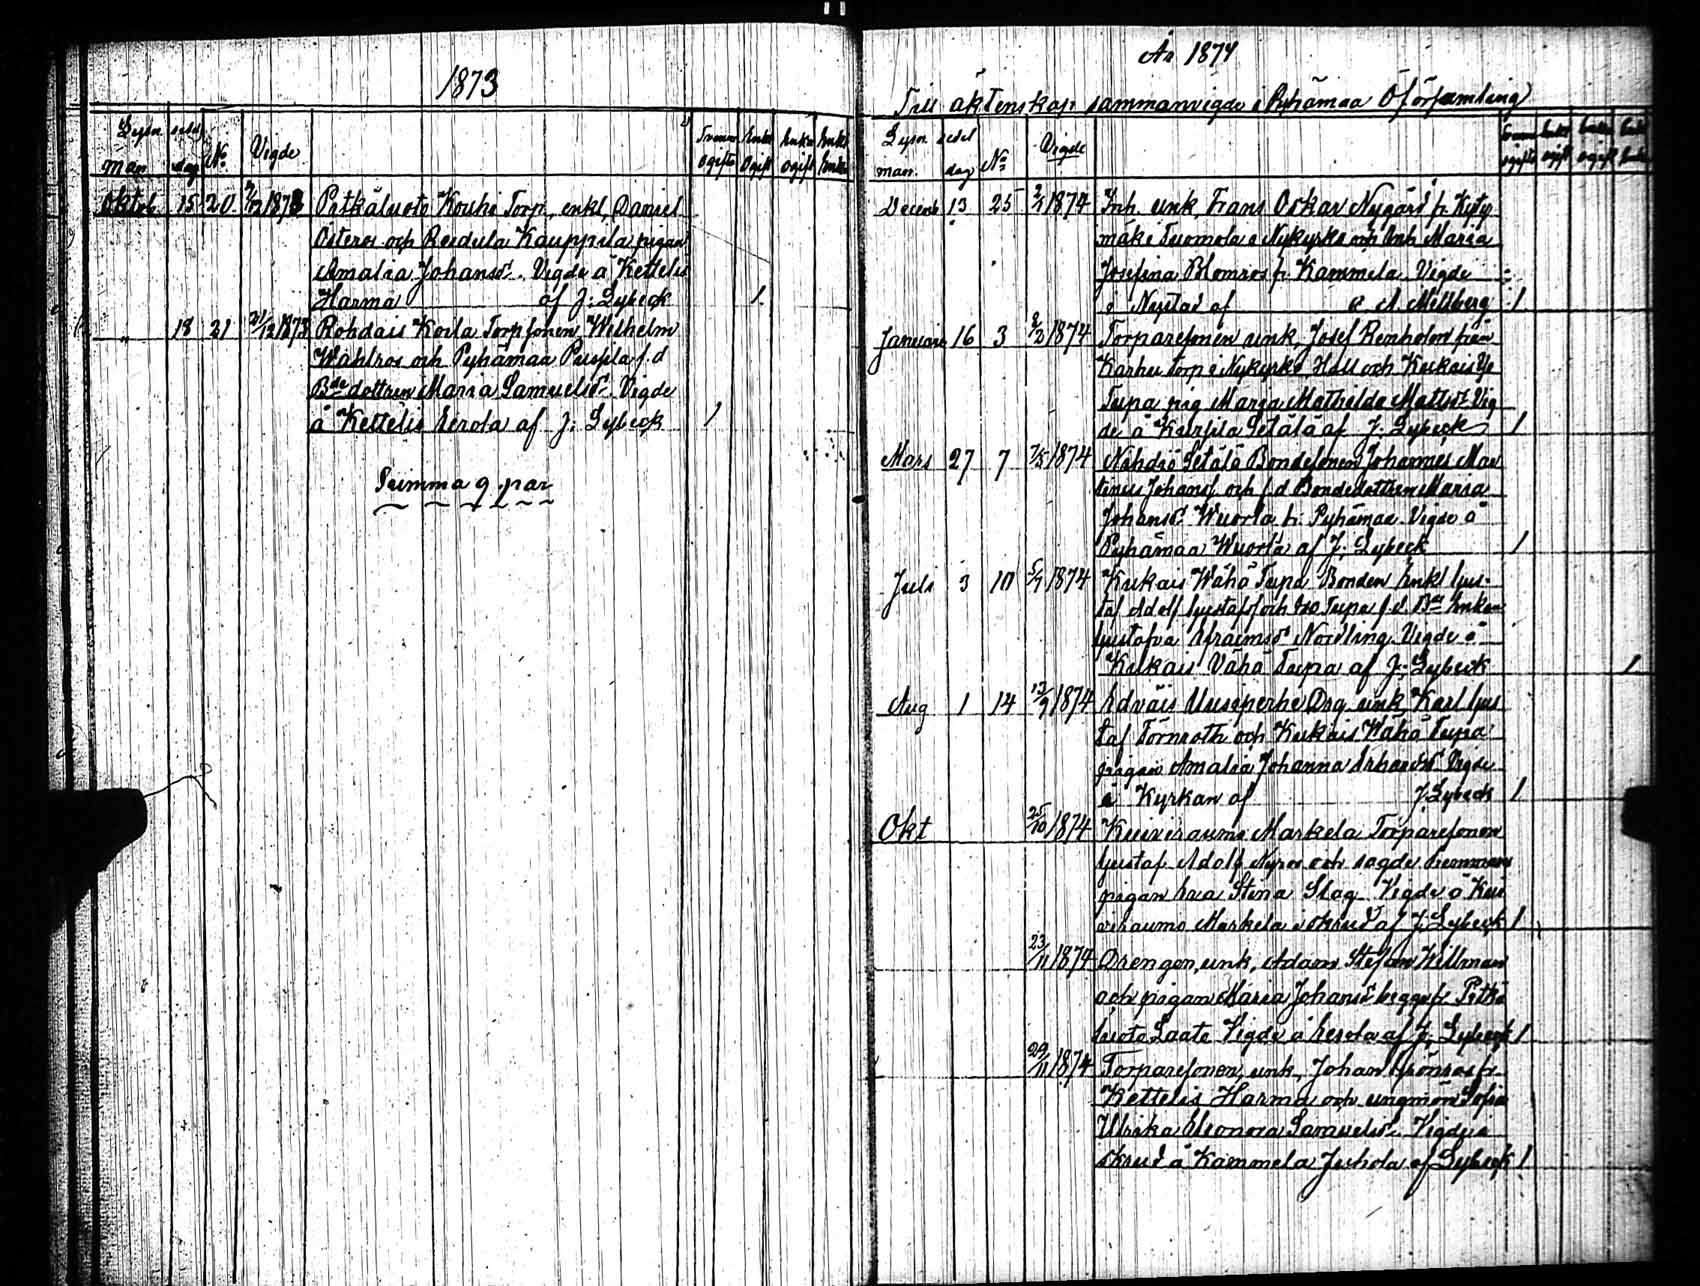 1873
Lysn. sedl.
man dag No Vigde Tvenne ogifte Enkl Ogift Enka ogift Enkl Enka
Oktob. 15 20 1873 Pitkäluoto Kouhi Torp, enkl, Daniel
Österos och Reidula Kauppila pigan
Amalia Johansdr. Vigde å Kettelis
Harma af J: Lybeck 1
" 18 21 21/12 1873 Rohdais Koila Torpsonen Wilhelm
Wahlros och Pyhämaa Puspila f.d
Bde dottren Maria Samuelsdr. Vigde
å Kettelis Eerola af J: Lybeck 1
Summa 9 par
År 1874
Till äktenskap sammanvigde i Pyhämaa Ö församling
Lysn sedel
man. dag No Vigde Tvenne ogifte Enkl ogift Enka ogift Enkl Enka
Decemb 13 25 1874 Inh. unk, Frans Oskar Nygård fr
mäki Tuomola i Nykyrko och Inh Maria
Josefina Blomros fr. Kammela. Vigde
i Nystad af A. Millberg 1
Januari 16 3 2/2 1874 Torparesonen unk, Josef Renholm från
Karhu Torp i Nykyrko och Kukais Yli
Tupa pig Maria Mathilda Mattsdr Vig
de å Kursila Setälä af J: Lybeck 1
Mars 27 7 1874 Nihdiö Setälä Bondesonen Johannes Mar
tinus Johansf. och f.d Bondedottren Maria
Johansdr. Wuorla fr. Pyhämaa. Vigde å
Pyhämaa Wuorla af J: Lybeck 1
Juli 3 10 5/7 1874 Kukais Wähä Tupa Bonden Enkl Gus-
taf Adolf Gustafsf och Iso Tupa f.d. Bde Enkan
Gustafva Efraimsdr Nordling. Vigde å
Kukais Vähä Tupa af J: Lybeck 1
Aug 1 14 13/9 1874 Edväis Uusiperhe Drg unk, Karl Gus
taf Törnroth och Kukais Wähä Tupa
pigan Amalia Johanna Erhardsdr Vigde
i Kyrkan af J. Lybeck 1
Okt 25/10 1874 Kuiviraumo Markela Torparesonen
Gustaf Adolf Nyros och
pigan Eva Stina Slag. Vigde å Kui
viraumo Markela i skrud af J: Lybeck 1
23/11 1874 Drengen, unk, Adam Stefan Killman
och pigan Maria Johansdr begge fr. Pitkä
luoto Laato Vigde å Eerola af J, Lybeck 1
29/11 1874 Torparesonen, unk, Johan Grönros fr.
Kettelis Harma och ungmön Sofia
Ulrika Eleonora Samuelsdr. Vigde i
skrud å Kammela Juhola af Lybeck 1